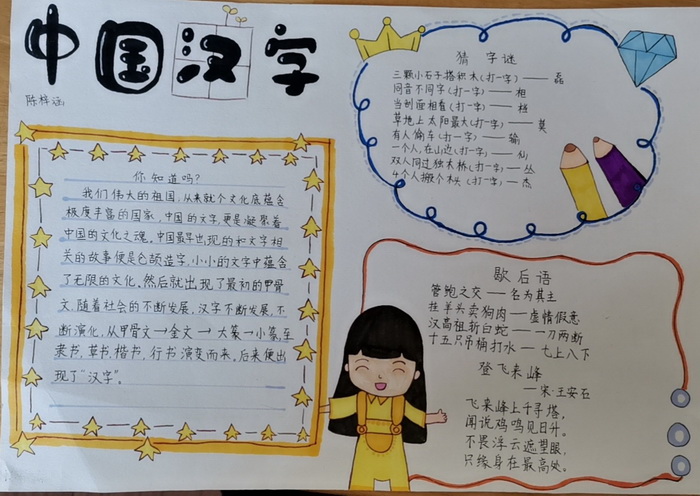 中国汉字
陈梓涵
你知道吗?
我们伟大的祖国,从来就个文化底蕴含
极度丰富的国家,中国的文字,更是凝聚着
中国的文化之魂,中国最早出现的和文字相
关的故事便是仓颉造字,小小的文字中蕴含
了无限的文化,然后就出现了最初的甲骨
文,随着社会的不断发展,汉字不断发展,不
断演化,从甲骨文→金文→大篆→小篆,至
隶书,草书,楷书,行书演变而来,后来便出
现了“汉字”。
猜字谜
三颗小石子搭积木(打一字)——磊
同音不同字(打一字)——相
当创面相看(打一字)——档
草地上太阳最大(打一字)——莫
有人偷车(打一字)——输
一个人,在山边(打一字)——仙
双人同过独木桥(打一字)——丛
4个人搬个木头(打一字)—杰
歇后语
管鲍之交——名为其主
挂羊头卖狗肉——虚情假意
汉高祖斩白蛇——一刀两断
十五只吊桶打水——七上八下
登飞来峰
——宋·王安石
飞来峰上千寻塔,
闻说鸡鸣见日升。
不畏浮云遮望眼,
只缘身在最高处。